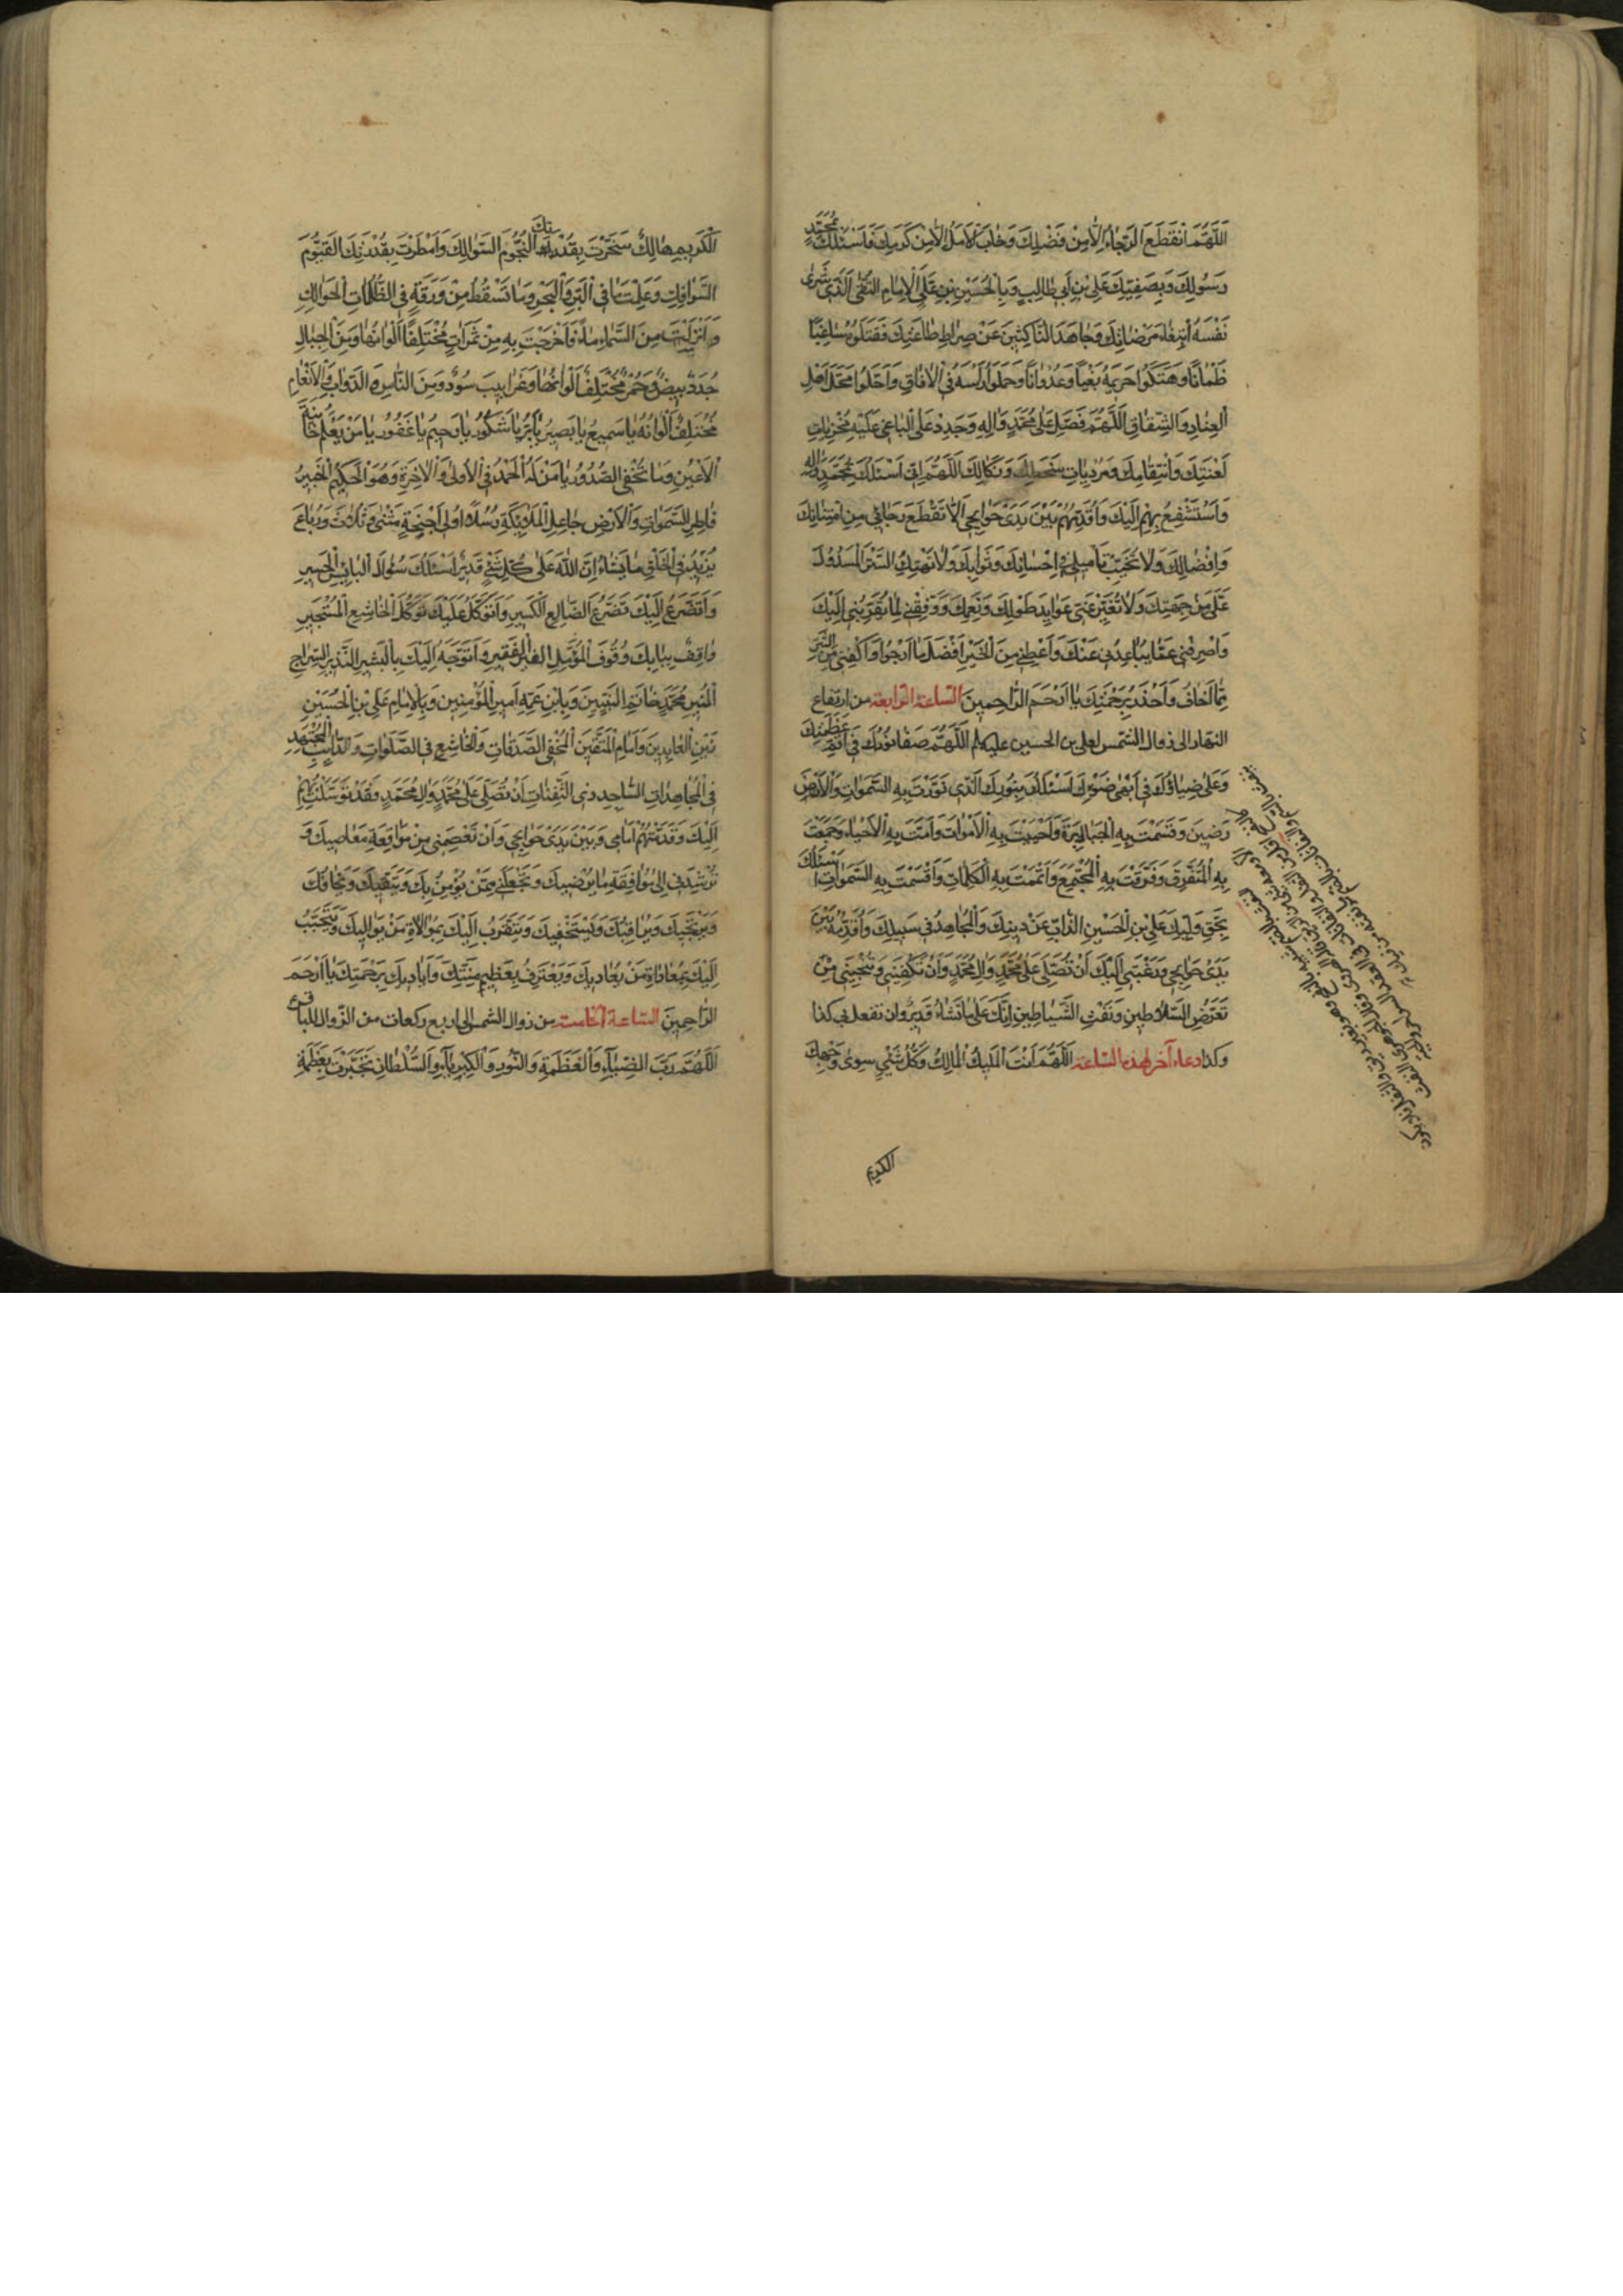 اَللّٰهُمَّ انْقَطَعَ الرَّجٰاءُ اِلّٰا مِنْ فَضْلِكَ وَخٰابَ الْاَمَلُ اِلّٰا مِنْ كَرَمِكَ فَاَسْئَلُكَ بِمُحَمَّدٍ
رَسُولِكَ وَبِصَفِيِّكَ عَلِيِّ بْنِ اَبي طٰالِبٍ وَبِالْحُسَيْنِ بْنِ عَلِيٍّ الْاِمٰامِ التَّقِيِّ الَّذي شَرىٰ
نَفْسَهُ ابْتِغٰاءَ مَرْضٰاتِكَ وَجٰاهَدَ النّٰاكِثينَ عَنْ صِرٰاطِ طٰاعَتِكَ فَقَتَلُوهُ سٰاغِبًا
ظَمْاٰنًا وَهَتَكُوا حَريمَهُ بَغْيًا وَعُدْوٰانًا وَحَمَلُوا رَأْسَهُ فِي الْاٰفٰاقِ وَاَحَلُّوا مَحَلَّ اَهْلِ
الْعِنٰادِ وَالشِّقٰاقِ اَللّٰهُمَّ فَصَلِّ عَلىٰ مُحَمَّدٍ وَاٰلِهِ وَجَدِّدْ عَلَى الْبٰاغي عَلَيْهِ مُخْزِيٰاتِ
لَعْنَتِكَ وَانْتِقٰامِكَ وَمُرْدِيٰاتِ سَخَطِكَ وَنَكٰالِكَ اَللّٰهُمَّ اِنّي اَسْئَلُكَ بِمُحَمَّدٍ وَاٰلِهِ
وَاَسْتَشْفِعُ بِهِمْ اِلَيْكَ وَاُقَدِّمُهُمْ بَيْنَ يَدَيْ حَوٰائِجي اَلّٰا تَقْطَعَ رَجٰائي مِنِ امْتِنٰانِكَ
وَاِفْضٰالِكَ وَلٰا تُخَيِّبَ تَأْميلي في اِحْسٰانِكَ وَثَوٰابِكَ وَلٰا تَهْتِكَ السِّتْرَ الْمَسْدُولَ
عَلَيَّ مِنْ جِهَتِكَ وَلٰا تُغَيِّرْ عَنّي عَوٰايِدَ طَوْلِكَ وَنِعَمِكَ وَوَفِّقْني لِمٰا يُقَرِّبُني اِلَيْكَ
وَاصْرِفْني عَمّٰا يُبٰاعِدُني عَنْكَ وَاَعْطِني مِنَ الْخَيْرِ اَفْضَلَ مٰا اَرْجُوا وَاكْفِني مِنَ الشَّرِّ
مٰا اَخٰافُ وَاَحْذَرُ بِرَحْمَتِكَ يٰا اَرْحَمَ الرّٰاحِمينَ الساعة الرابعة من ارتفاع
النهار الى زوال الشمس لعلي بن الحسين عليه‌السلم اَللّٰهُمَّ صَفٰا نُورُكَ في اَتَمِّ عَظَمَتِكَ
وَعَلٰى ضِيٰاؤُكَ في اَبْهىٰ ضَوْئِكَ اَسْئَلُكَ بِنُورِكَ الَّذي نَوَّرْتَ بِهِ السَّمٰوٰاتِ وَالْاَرَضينَ
وَقَصَمْتَ بِهِ الْجَبٰابِرَةَ وَاَحْيَيْتَ بِهِ الْاَمْوٰاتَ وَاَمَتَّ بِهِ الْاَحْيٰاءَ وَجَمَعْتَ
بِهِ الْمُتَفَرِّقَ وَفَرَّقْتَ بِهِ الْمُجْتَمِعَ وَاَتْمَمْتَ بِهِ الْكَلِمٰاتِ وَاَقَمْتَ بِهِ السَّمٰوٰاتِ اَسْئَلُكَ
بِحَقِّ وَلِيِّكَ عَلِيِّ بْنِ الْحُسَيْنِ الذّٰابِّ عَنْ دينِكَ وَالْمُجٰاهِدِ في سَبيلِكَ وَاُقَدِّمُهُ بَيْنَ
يَدَيْ حَوٰائِجي وَرَغْبَتي اِلَيْكَ اَنْ تُصَلِّيَ عَلىٰ مُحَمَّدٍ وَاٰلِ مُحَمَّدٍ وَاَنْ تَكْفِيَني وَتُنْجِيَني مِنْ
تَعَرُّضِ السَّلٰاطينِ وَنَفْثِ الشَّيٰاطينِ اِنَّكَ عَلىٰ مٰا تَشٰاءُ قَديرٌ وان تفعل بي كذا
وكذا دعاء آخر لهذه الساعة اَللّٰهُمَّ اَنْتَ الْمَليكُ الْمٰالِكُ وَكُلُّ شَيْءٍ سِوىٰ وَجْهِكَ
الكريم
الْكَريمِ هٰالِكٌ سَخَّرْتَ بِقُدْرَتِكَ النُّجُومَ السَّوٰالِكَ وَاَمْطَرْتَ بِقُدْرَتِكَ الْغُيُومَ
السَّوٰافِكَ وَعَلِمْتَ مٰا فِي الْبَرِّ وَالْبَحْرِ وَمٰا تَسْقُطُ مِنْ وَرَقَةٍ فِي الظُّلُمٰاتِ الْحَوٰالِكِ
وَاَنْزَلْتَ مِنَ السَّمٰاءِ مٰاءً فَاَخْرَجْتَ بِهِ مِنْ ثَمَرٰاتٍ مُخْتَلِفًا اَلْوٰانُهٰا وَمِنَ الْجِبٰالِ
جُدَدٌ بيضٌ وَحُمْرٌ مُخْتَلِفٌ اَلْوٰانُهٰا وَغَرٰابيبُ سُودٌ وَمِنَ النّٰاسِ وَالدَّوٰابِّ وَالْاَنْعٰامِ
مُخْتَلِفٌ اَلْوٰانُهُ يٰا سَميعُ يٰا بَصيرُ يٰا بَرُّ يٰا شَكُورُ يٰا رَحيمُ يٰا غَفُورُ يٰا مَنْ يَعْلَمُ خٰائِنَةَ
الْاَعْيُنِ وَمٰا تُخْفِي الصُّدُورُ يٰا مَنْ لَهُ الْحَمْدُ فِي الْاُولىٰ وَالْاٰخِرَةِ وَهُوَ الْحَكيمُ الْخَبيرُ
فٰاطِرِ السَّمٰوٰاتِ وَالْاَرْضِ جٰاعِلِ الْمَلٰائِكَةِ رُسُلًا اُولي اَجْنِحَةٍ مَثْنىٰ وَثُلٰاثَ وَرُبٰاعَ
يَزيدُ فِي الْخَلْقِ مٰا يَشٰاءُ اِنَّ اللّٰهَ عَلىٰ كُلِّ شَيْءٍ قَديرٌ اَسْئَلُكَ سُؤٰالَ الْبٰائِسِ الْحَسيرِ
وَاَتَضَرَّعُ اِلَيْكَ تَضَرُّعَ الضّٰالِعِ الْكَسيرِ وَاَتَوَكَّلُ عَلَيْكَ تَوَكُّلَ الْخٰاشِعِ الْمُسْتَجيرِ
وَاَقِفُ بِبٰابِكَ وُقُوفَ الْمُؤَمِّلِ الْفَقيرِ وَاَتَوَجَّهُ اِلَيْكَ بِالْبَشيرِ النَّذيرِ السِّرٰاجِ
الْمُنيرِ مُحَمَّدٍ خٰاتَمِ النَّبِيّينَ وَبِابْنِ عَمِّهِ اَميرِ الْمُؤْمِنينَ وَبِالْاِمٰامِ عَلِيِّ بْنِ الْحُسَيْنِ
زَيْنِ الْعٰابِدينَ وَاِمٰامِ الْمُتَّقينَ الْمُخْفِي الصَّدَقٰاتِ وَالْخٰاشِعِ فِي الصَّلَوٰاتِ وَالدّٰائِبِ الْمُجْتَهِدِ
فِي الْمُجٰاهَدٰاتِ السّٰاجِدِ ذِي الثَّفِنٰاتِ اَنْ تُصَلِّيَ عَلىٰ مُحَمَّدٍ وَاٰلِ مُحَمَّدٍ فَقَدْ تَوَسَّلْتُ بِهِمْ
اِلَيْكَ وَقَدَّمْتُهُمْ اَمٰامي وَبَيْنَ يَدَيْ حَوٰائِجي وَاَنْ تَعْصِمَني مِنْ مُوٰاقَعَةِ مَعٰاصيكَ وَ
تُرْشِدَني اِلىٰ مُوٰافَقَةِ مٰا يُرْضيكَ وَتَجْعَلَني مِمَّنْ يُؤْمِنُ بِكَ وَيَتَّقيكَ وَيَخٰافُكَ
وَيَرْتَجيكَ وَيُرٰاقِبُكَ وَيَسْتَحْييكَ وَيَتَقَرَّبُ اِلَيْكَ بِمُوٰالٰاةِ مَنْ يُوٰاليكَ وَيَتَحَبَّبُ
اِلَيْكَ بِمُعٰادٰاةِ مَنْ يُعٰاديكَ وَيَعْتَرِفُ بِعَظيمِ مِنَّتِكَ وَاَيٰاديكَ بِرَحْمَتِكَ يٰا اَرْحَمَ
الرّٰاحِمينَ الساعة الخامسة من زوال الشمس الى اربع ركعات من الزوال للباقر ع
اَللّٰهُمَّ رَبَّ الضِّيٰاءِ وَالْعَظَمَةِ وَالنُّورِ وَالْكِبْرِيٰاءِ وَالسُّلْطٰانِ تَجَبَّرْتَ بِعَظَمَةِ